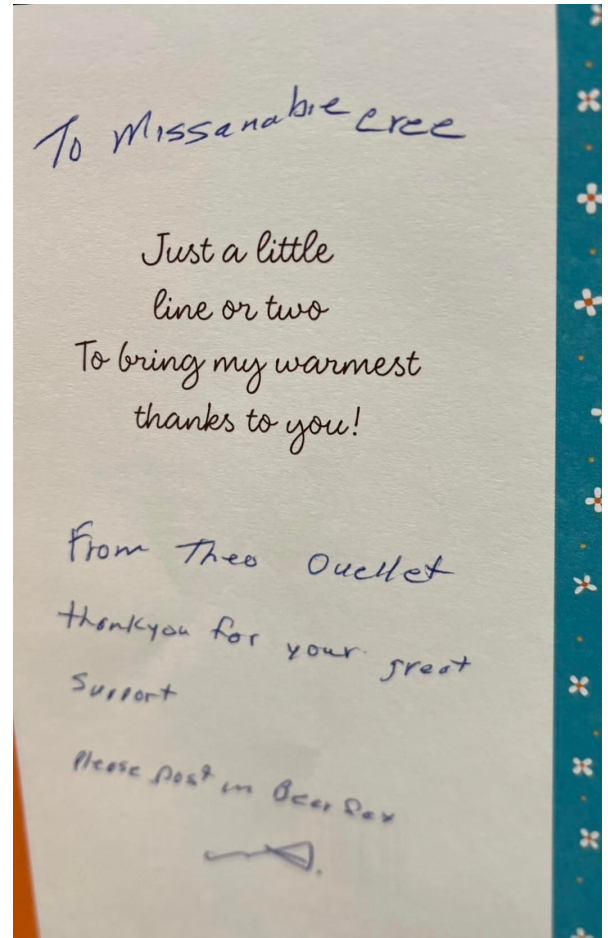 To Missanabie cree
Just a little
line or two
To bring my warmest
thanks to you!
From Theo Ouellet
thankyou for your great
support
Please post in Bear Fax